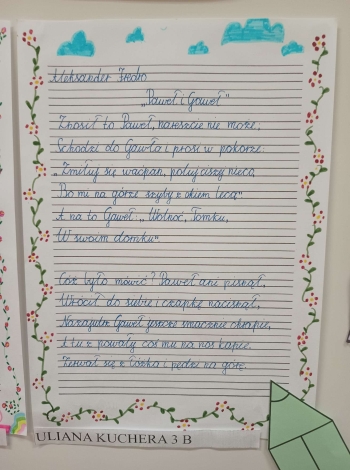 Aleksander Fredro
„Paweł i Gaweł"
Znosił to Paweł, nareszcie nie może;
Schodzi do Gawła i prosi w pokorze:
„Zmiłuj się waćpan, poluj ciszej nieco,
Bo mi na górze szyby z okien lecą".
A na to Gaweł: „Wolnoć, Tomku,
W swoim domku".
Cóż było mówić? Paweł ani pisnął,
Wrócił do siebie i czapkę nacisnął,
Nazajutrz Gaweł jeszcze smacznie chrapie,
A tu z powały coś mu na nos kapie.
Zerwał się z łóżka i pędzi na górę.
ULIANA KUCHERA 3 B